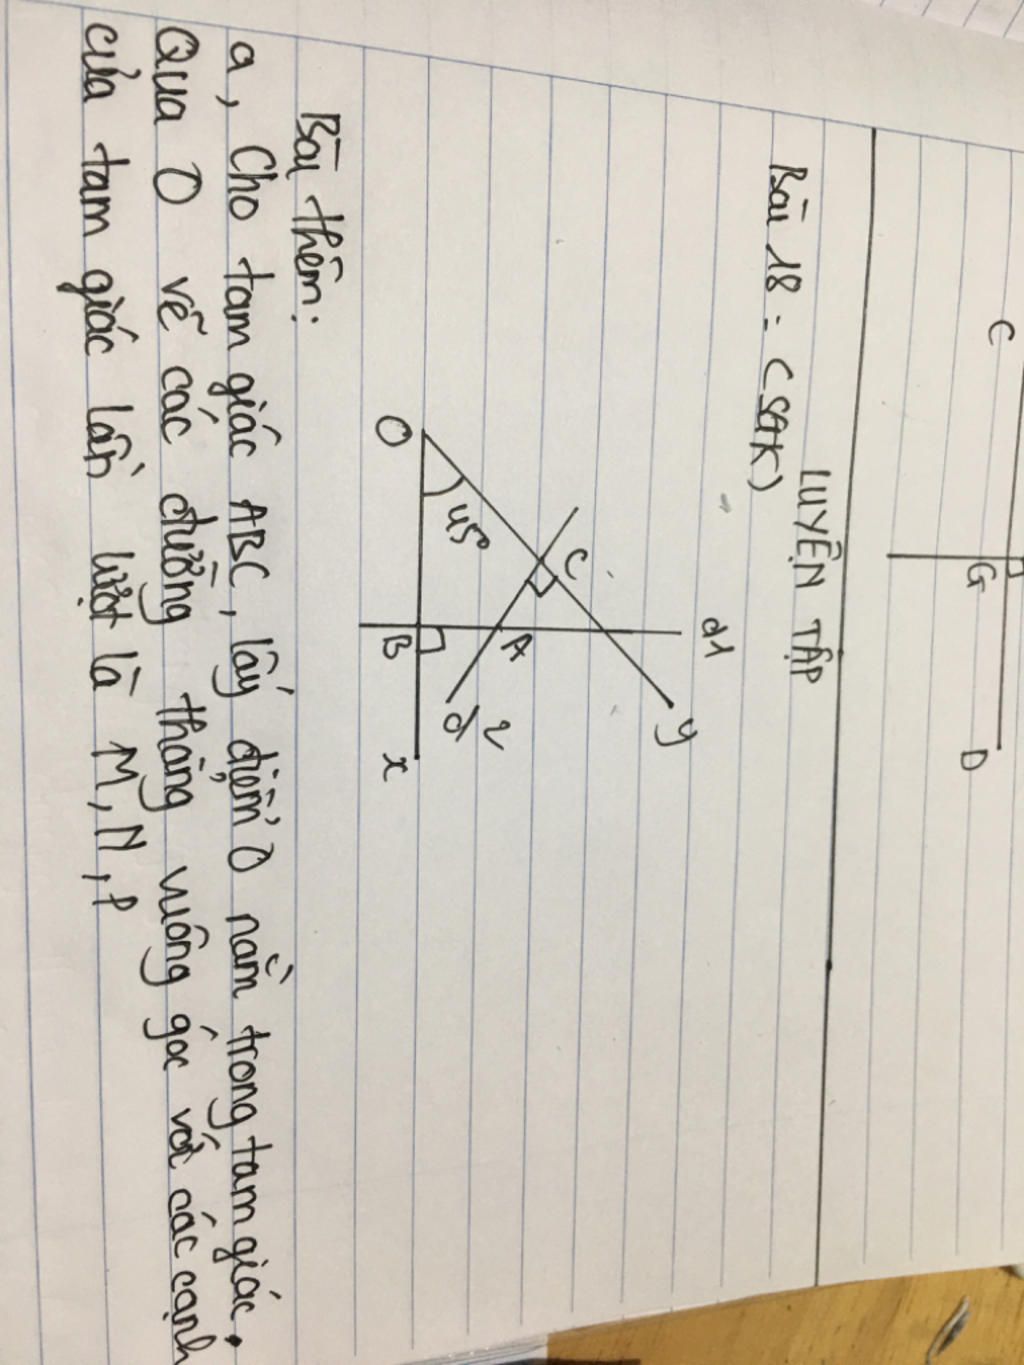 C
G
D
LUYỆN TẬP
Bài 18: (SGK)
d1
y
C
45°
A
d2
O
B
x
Bài thêm:
a, Cho tam giác ABC, lấy điểm O nằm trong tam giác.
Qua O vẽ các đường thẳng vuông góc với các cạnh
của tam giác lần lượt là M, N, P